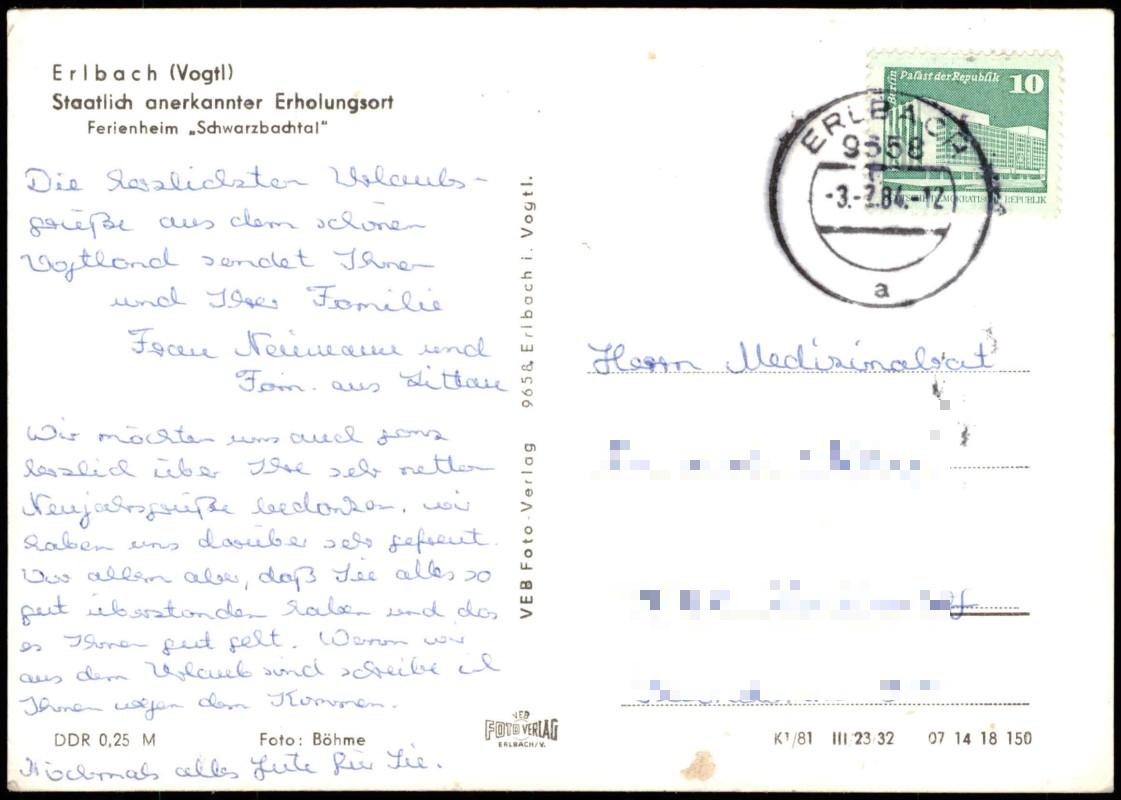 Erlbach (Vogtl)
Staatlich anerkannter Erholungsort
Ferienheim „Schwarzbachtal"
Die herzlichsten Urlaubs-
grüße aus dem schönen
Vogtland sendet Ihnen
und Ihrer Familie
Frau Neumann und
Fam. aus Zittau
Wir möchten uns auch ganz
herzlich über Ihre sehr netten
Neujahrsgrüße bedanken, wir
haben uns darüber sehr gefreut.
Vor allem aber, daß Sie alles so
gut überstanden haben und das
es Ihnen gut geht. Wenn wir
aus dem Urlaub sind schreibe ich
Ihnen wegen dem Kommen.
Nochmals alles Gute für Sie.
DDR 0,25 M
Foto: Böhme
VEB Foto-Verlag 9658 Erlbach i. Vogtl.
VEB
FOTO VERLAG
ERLBACH/V.
Berlin
Palast der Republik
10
DEUTSCHE DEMOKRATISCHE REPUBLIK
ERLBACH
9658
-3.-2.84.-12
a
Herrn Medizinalrat
K1/81 III/23/32 07 14 18 150